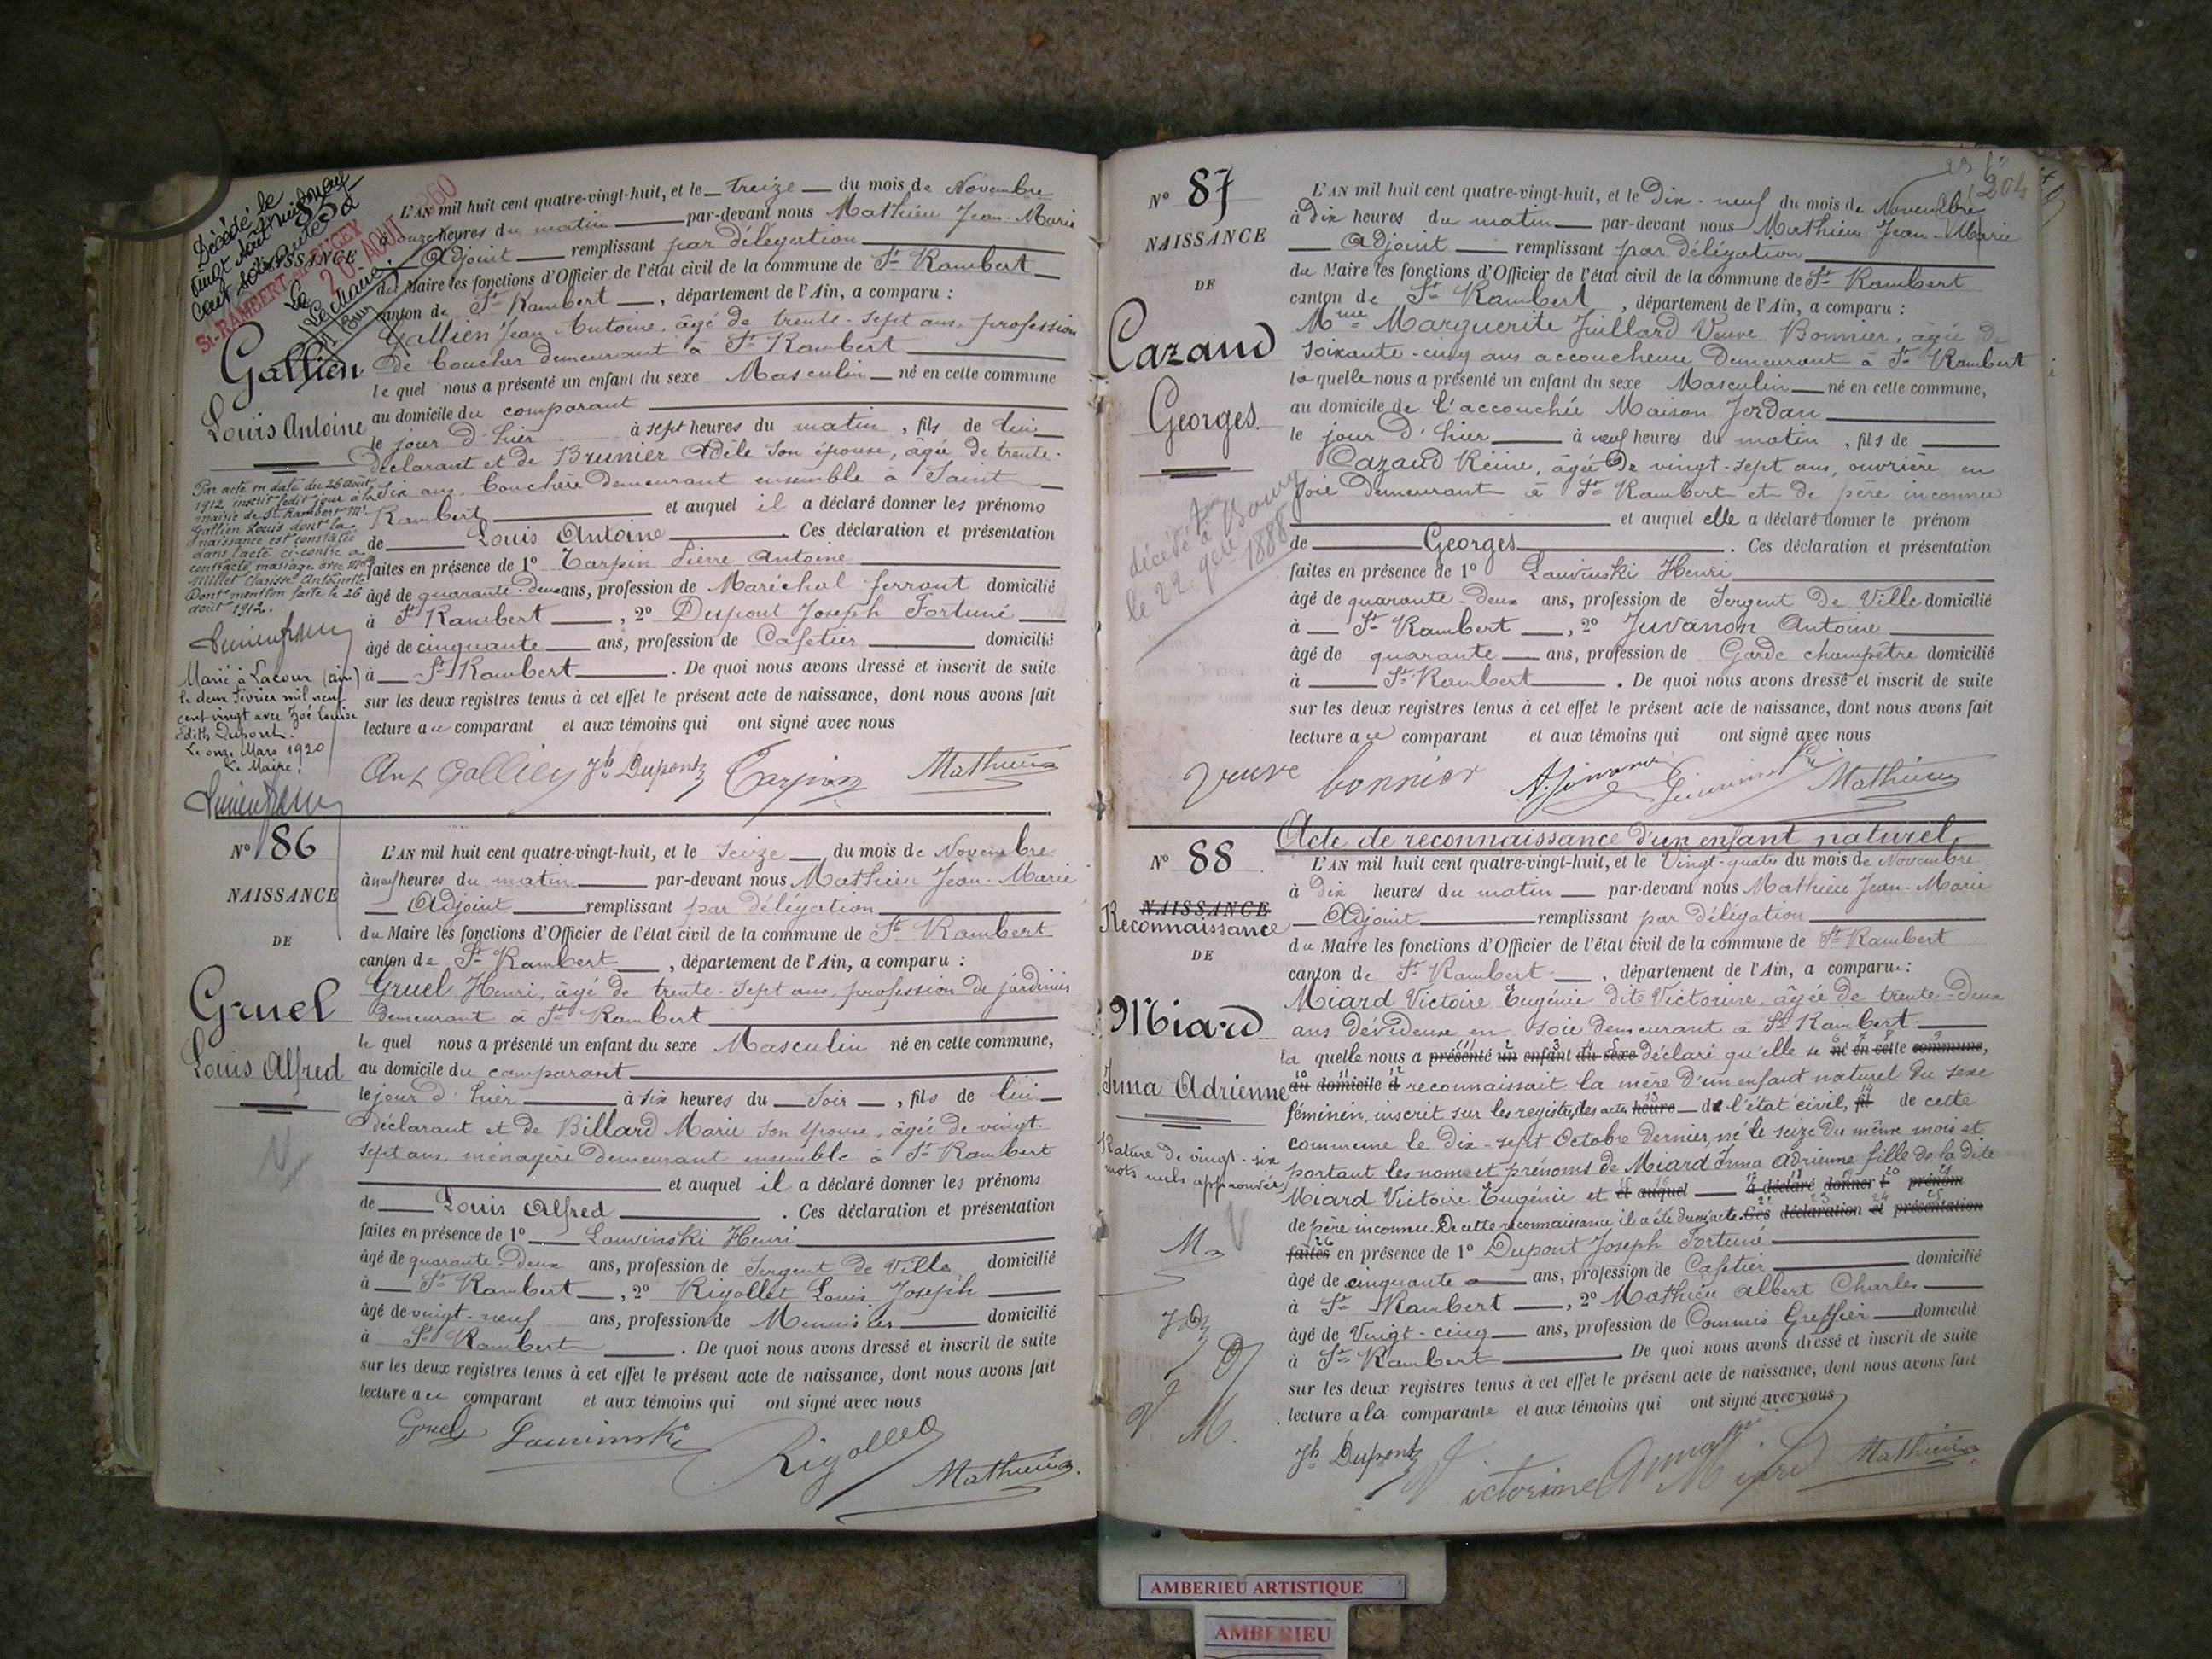 Décédé le
vingt huit
cent soixante
85
NAISSANCE
St-RAMBERT-en-BUGEY
Le 20 AOUT 1960
Le Maire,
Gallien
Louis Antoine
Par acte en date du 26 août
1912 inscrit ledit jour à la
mairie de St. Rambert Mr.
Gallien Louis dont la
naissance est constatée
dans l'acte ci-contre a
contracté mariage avec Mlle
Millet Clarisse Antoinette
Dont mention faite le 26
août 1912.
Marié à Lacoux (ain)
le deux Février mil neuf
cent vingt avec Zoé Louise
Edith Dupont.
Le onze Mars 1920
Le Maire:
L'AN mil huit cent quatre-vingt-huit, et le treize du mois de Novembre
à onze heures du matin par-devant nous Mathieu Jean-Marie
Adjoint remplissant par délégation
du Maire les fonctions d'Officier de l'état civil de la commune de St Rambert
canton de St Rambert , département de l'Ain, a comparu :
Gallien Jean Antoine, âgé de trente-sept ans, profession
de boucher demeurant à St Rambert
le quel nous a présenté un enfant du sexe Masculin né en cette commune
au domicile du comparant
le jour d'hier à sept heures du matin , fils de lui
déclarant et de Brunier Adèle son épouse, âgée de trente-
six ans, bouchère demeurant ensemble à Saint
Rambert et auquel il a déclaré donner les prénoms
de Louis Antoine . Ces déclaration et présentation
faites en présence de 1º Tarpin Pierre Antoine
âgé de quarante-deux ans, profession de Maréchal ferrant domicilié
à St Rambert , 2º Dupont Joseph Fortuné
âgé de cinquante ans, profession de Cafetier domicilié
à St Rambert . De quoi nous avons dressé et inscrit de suite
sur les deux registres tenus à cet effet le présent acte de naissance, dont nous avons fait
lecture au comparant et aux témoins qui ont signé avec nous
Ant Gallien Jh Dupont Tarpin Mathieu
Nº 86
NAISSANCE
DE
Gruel
Louis Alfred
L'AN mil huit cent quatre-vingt-huit, et le seize du mois de Novembre
à neuf heures du matin par-devant nous Mathieu Jean-Marie
Adjoint remplissant par délégation
du Maire les fonctions d'Officier de l'état civil de la commune de St Rambert
canton de St Rambert , département de l'Ain, a comparu :
Gruel Henri, âgé de trente-sept ans, profession de jardinier
demeurant à St Rambert
le quel nous a présenté un enfant du sexe Masculin né en cette commune,
au domicile du comparant
le jour d'hier à six heures du soir , fils de lui
déclarant et de Billard Marie son épouse, âgée de vingt-
sept ans, ménagère demeurant ensemble à St Rambert
et auquel il a déclaré donner les prénoms
de Louis Alfred . Ces déclaration et présentation
faites en présence de 1º Lauvinski Henri
âgé de quarante-deux ans, profession de Sergent de Ville domicilié
à St Rambert , 2º Rigollet Louis Joseph
âgé de vingt-neuf ans, profession de Menuisier domicilié
à St Rambert . De quoi nous avons dressé et inscrit de suite
sur les deux registres tenus à cet effet le présent acte de naissance, dont nous avons fait
lecture au comparant et aux témoins qui ont signé avec nous
Gruel Lauvinski Rigollet Mathieu
204
Nº 87
NAISSANCE
DE
Cazaud
Georges.
décédé à Bourg
le 22 9bre 1888
L'AN mil huit cent quatre-vingt-huit, et le Dix-neuf du mois de Novembre
à Dix heures du matin par-devant nous Mathieu Jean-Marie
Adjoint remplissant par délégation
du Maire les fonctions d'Officier de l'état civil de la commune de St Rambert
canton de St Rambert , département de l'Ain, a comparu :
Mme Marguerite Juillard Veuve Bonnier, âgée de
soixante-cinq ans accoucheuse demeurant à St Rambert
la quelle nous a présenté un enfant du sexe Masculin né en cette commune,
au domicile de l'accouchée Maison Jordan
le jour d'hier à neuf heures du matin , fils de
Cazaud Réine, âgée de vingt-sept ans, ouvrière en
soie demeurant à St Rambert et de père inconnu
et auquel elle a déclaré donner le prénom
de Georges . Ces déclaration et présentation
faites en présence de 1º Lauvinski Henri
âgé de quarante-deux ans, profession de Sergent de Ville domicilié
à St Rambert , 2º Juvanon Antoine
âgé de quarante ans, profession de Garde champêtre domicilié
à St Rambert . De quoi nous avons dressé et inscrit de suite
sur les deux registres tenus à cet effet le présent acte de naissance, dont nous avons fait
lecture au comparant et aux témoins qui ont signé avec nous
veuve bonnier A. Juvanon Lauvinski Mathieu
Acte de reconnaissance d'un enfant naturel
Nº 88
NAISSANCE
Reconnaissance
DE
Miard
Irma Adrienne
Rature de vingt-six
mots nuls approuvée
M
JD
V M.
L'AN mil huit cent quatre-vingt-huit, et le Vingt-quatre du mois de Novembre
à dix heures du matin par-devant nous Mathieu Jean-Marie
Adjoint remplissant par délégation
du Maire les fonctions d'Officier de l'état civil de la commune de St Rambert
canton de St Rambert , département de l'Ain, a comparue :
Miard Victoire Eugénie dite Victorine, âgée de trente-deux
ans dévideuse en soie demeurant à St Rambert
la quelle nous a présenté un enfant du sexe déclaré qu'elle se né en cette commune,
au domicile d reconnaissait la mère d'un enfant naturel du sexe
féminin, inscrit sur les registres des actes heure de l'état civil, fil de cette
commune le dix-sept Octobre dernier, né le seize du même mois et
portant les noms et prénoms de Miard Irma Adrienne fille de la dite
Miard Victoire Eugénie et et auquel a déclaré donner l prénom
de père inconnu. De cette reconnaissance il a été dressé acte. Ces déclaration et présentation
faites en présence de 1º Dupont Joseph Fortuné
âgé de cinquante ans, profession de Cafetier domicilié
à St Rambert , 2º Mathieu Albert Charles
âgé de Vingt-cinq ans, profession de Commis Greffier domicilié
à St Rambert . De quoi nous avons dressé et inscrit de suite
sur les deux registres tenus à cet effet le présent acte de naissance, dont nous avons fait
lecture a la comparante et aux témoins qui ont signé avec nous
Jh Dupont Victorine Miard Mathieu
AMBERIEU ARTISTIQUE
AMBERIEU